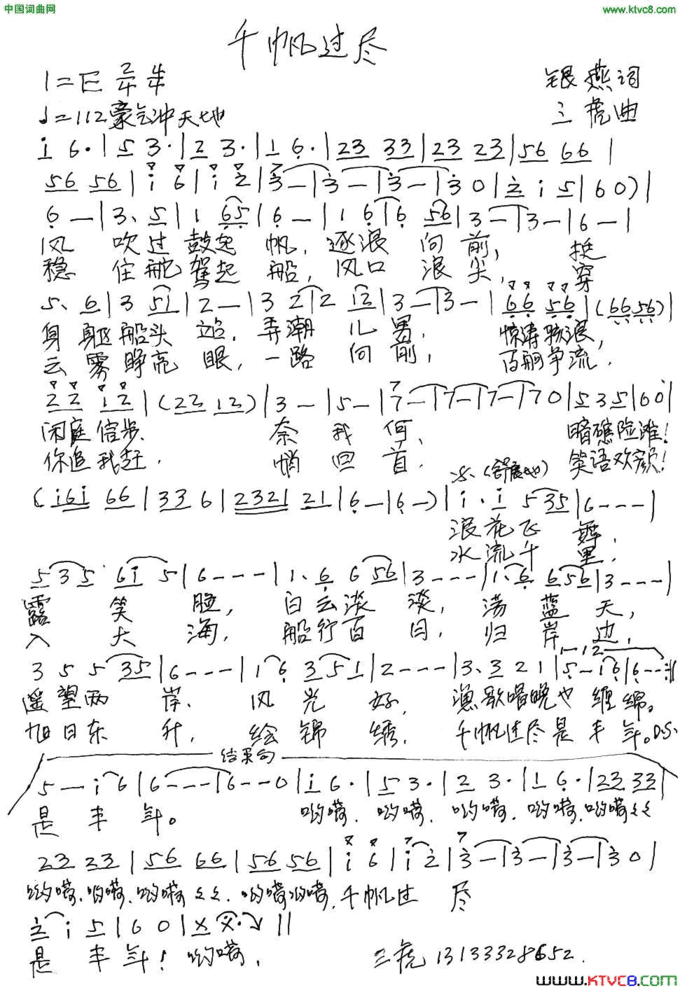 中国词曲网
www.ktvc8.com
千帆过尽
1=E 2/4 4/4
银燕词
♩=112 豪气冲天地
三虎曲
i 6·|5 3·|2 3·|1 6·|23 33|23 23|56 66|
56 56|i 6|i 2|3-|3-|3-|30|2 i 5|60)|
6-|3、5|1 65|6-|1 6|6 56|3-|3-|6-|
风 吹过鼓起 帆,逐浪 向前, 挺
稳 住舵驾起 船,风口 浪尖, 穿
5、6|3 51|2-|3 2|2 12|3-|3-|66 56|(66 56)|
身躯船头 站,弄潮 儿男, 惊涛骇浪,
云雾睁亮 眼,一路 向前, 百舸争流,
22 12|(22 12)|3-|5-|7-|7-|7-|70|535|60|
闲庭信步 奈我何, 暗礁险滩!
你追我赶. 悄回首, 笑语欢颜!
(i6i 66|33 6|2321 21|6-|6-)|i·i 5 35|6---|
(舒展地)
浪花飞舞,
水流千里,
5 3 5 6i 5|6---|1、6 6 56|3---|1、6 656|3---|
露笑脸, 白云淡淡, 荡蓝天,
入大海, 船行百日, 归岸边,
3 5 5 35|6---|1 6 3 51|2---|3、3 2 1|5-i6|6--:|
1-12
遥望两岸、风光好, 渔歌唱晚也缠绵。
旭日东升,绘锦绣, 千帆过尽是丰年。D.S.
结束句
5-i6|6---|6--0|i 6·|5 3·|2 3·|1 6·|23 33|
是丰年。 哟嗬、哟嗬、哟嗬、哟嗬、哟嗬
23 23|56 66|56 56|i 6|i 2|3-|3-|3-|30|
哟嗬、哟嗬、哟嗬 哟嗬哟嗬,千帆过 尽
2 i 5|60|X X·||
是丰年!哟嗬,
三虎 13133328652.
www.KTVC8.com